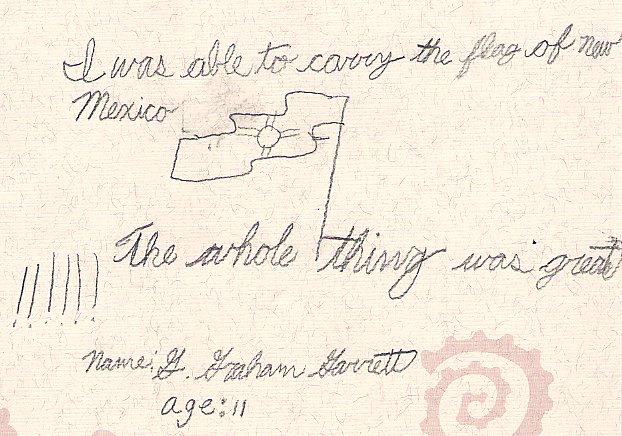 I was able to carry the flag of New
Mexico
The whole thing was great
!!!!!!
Name: G. Graham Garrett
age: 11